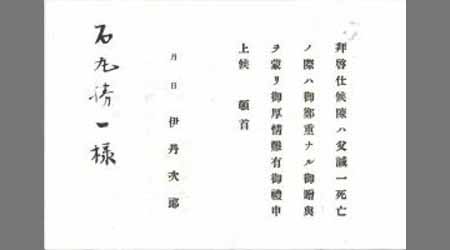 拜啓仕候陳ハ父誠一死亡
ノ際ハ御鄭重ナル御贈與
ヲ蒙リ御厚情難有御禮申
上候 頓首
月 日 伊丹次郎
石丸勝一様